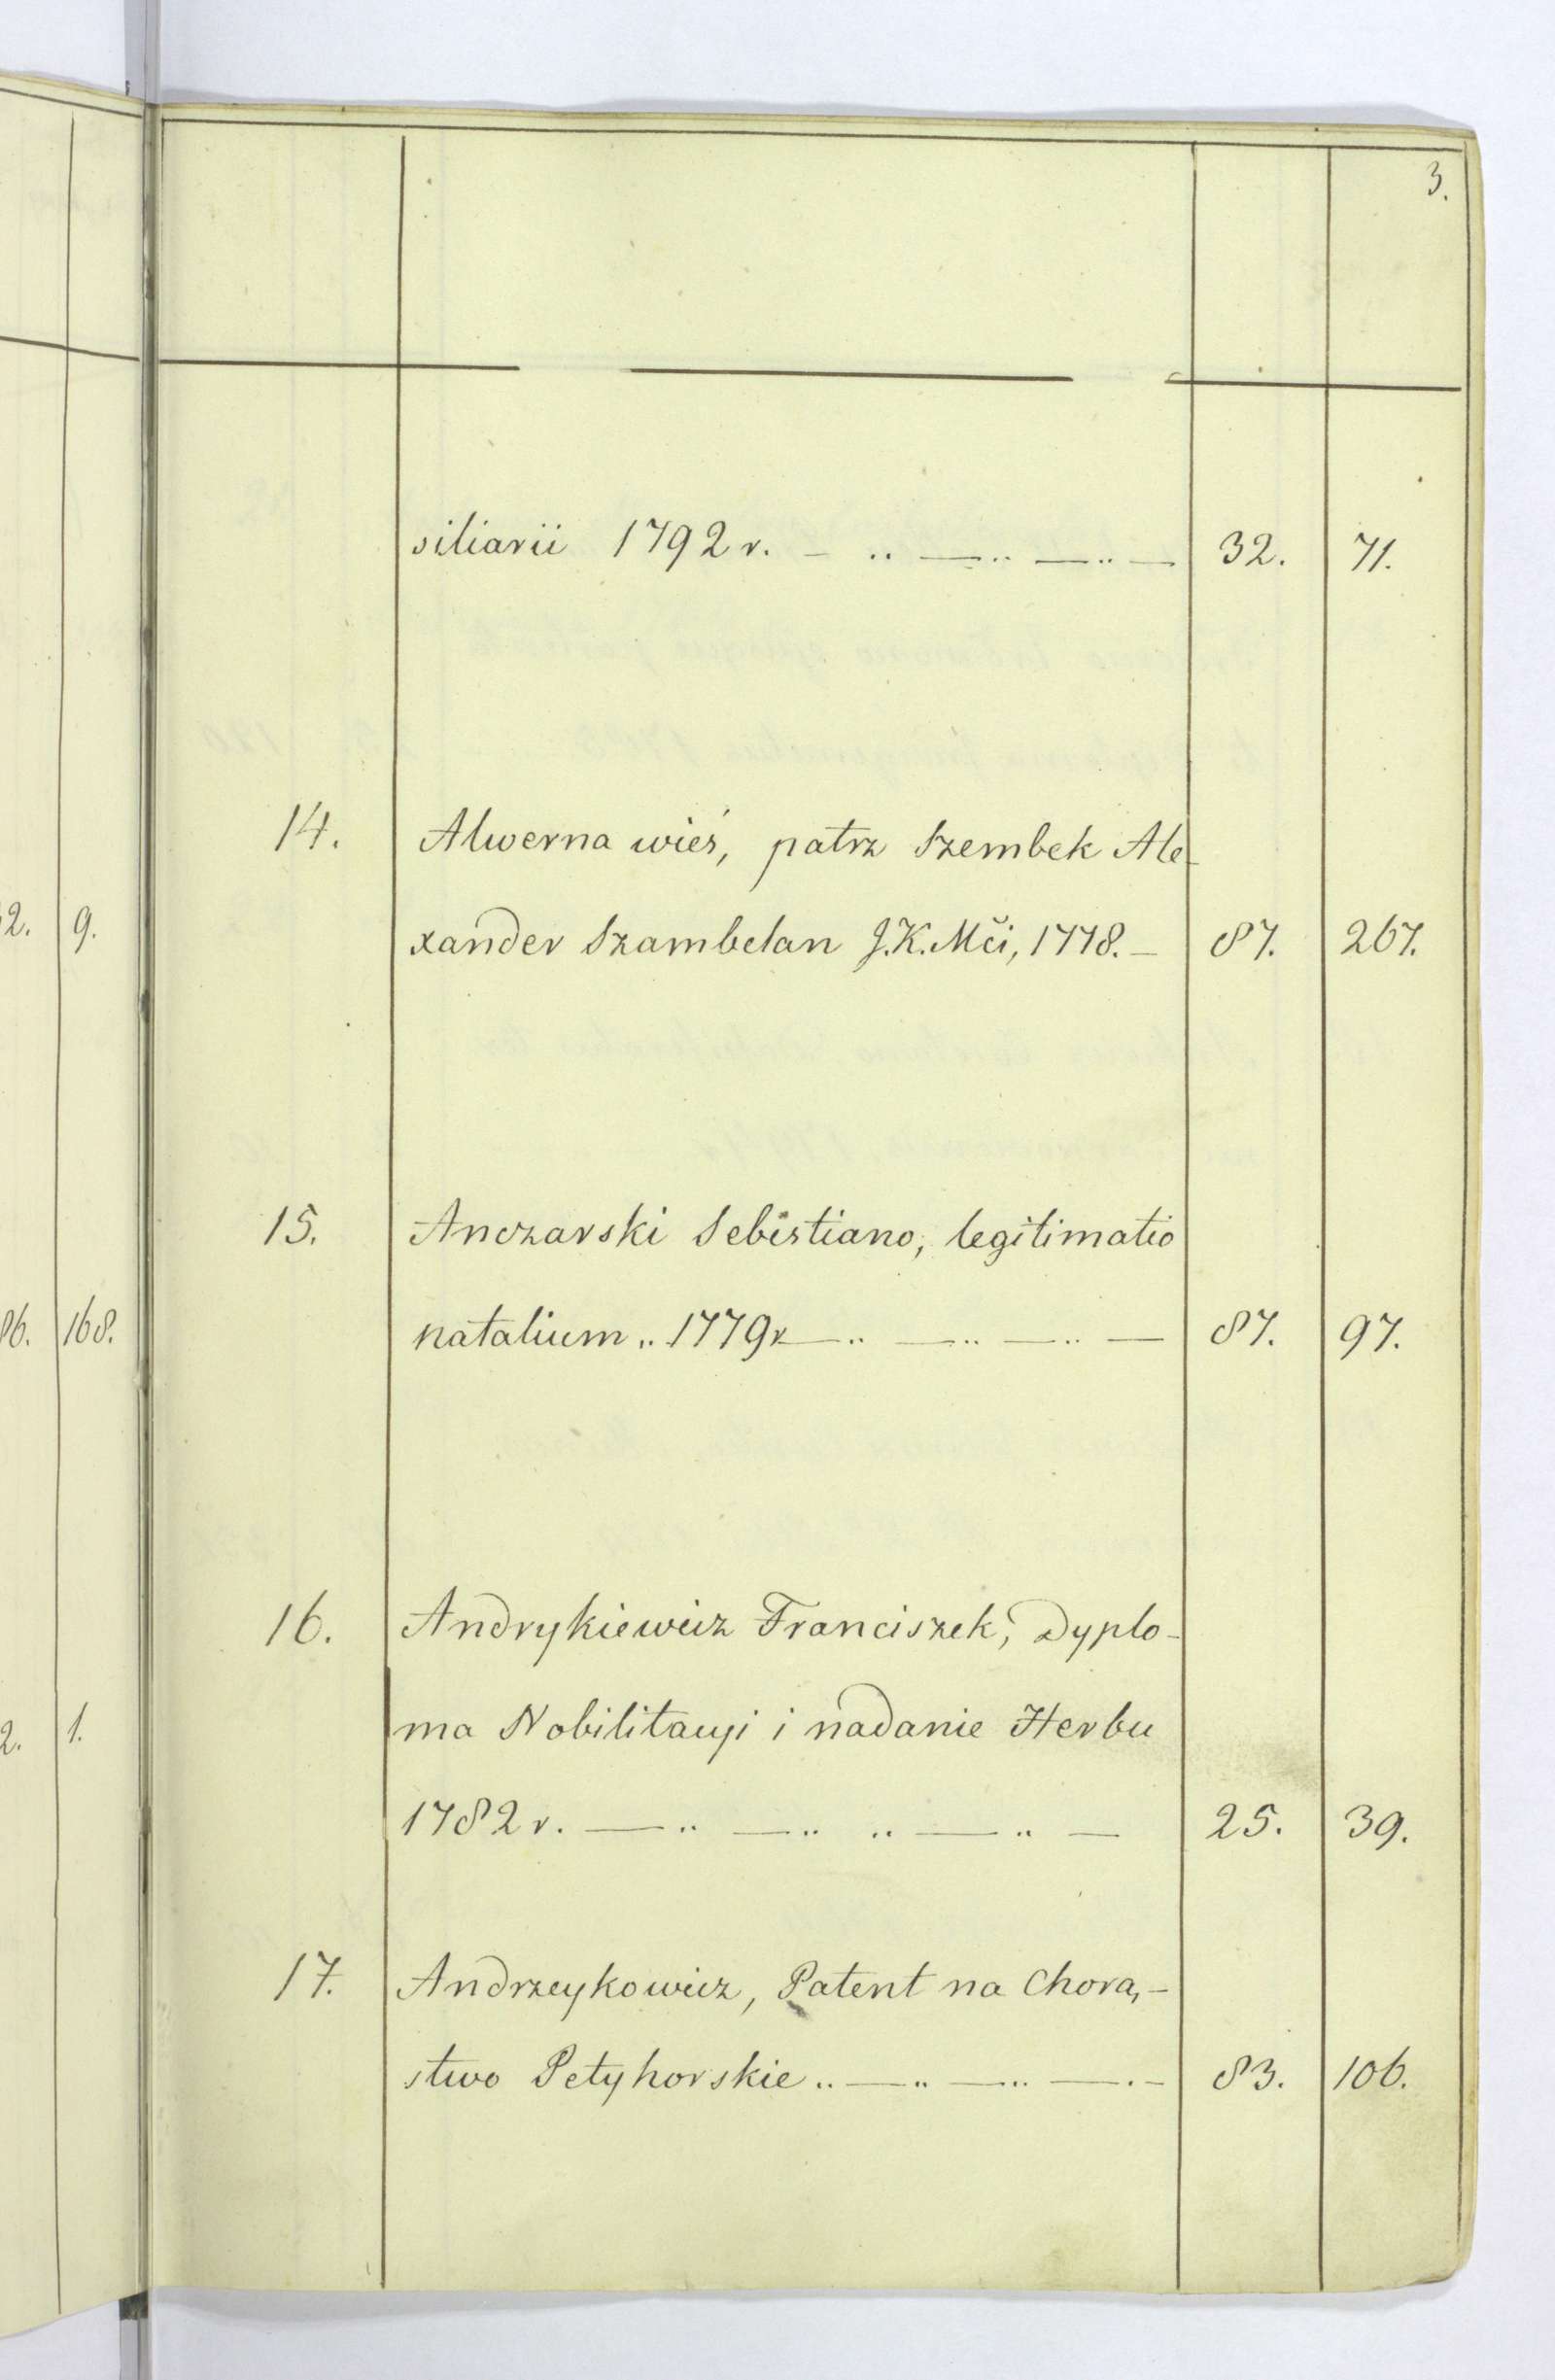 3.
siliarii 1792 r. 32. 71.
14. Alwerna wieś, patrz Szembek Ale-
xander Szambelan J.K.Mći, 1778. 87. 267.
15. Anczarski Sebistiano, legitimatio
natalium 1779 r 87. 97.
16. Andrykiewicz Franciszek, Dyplo-
ma Nobilitacyi i nadanie Herbu
1782 r. 25. 39.
17. Andrzeykowicz, Patent na Chorą-
stwo Petyhorskie 83. 106.
9.
168.
1.